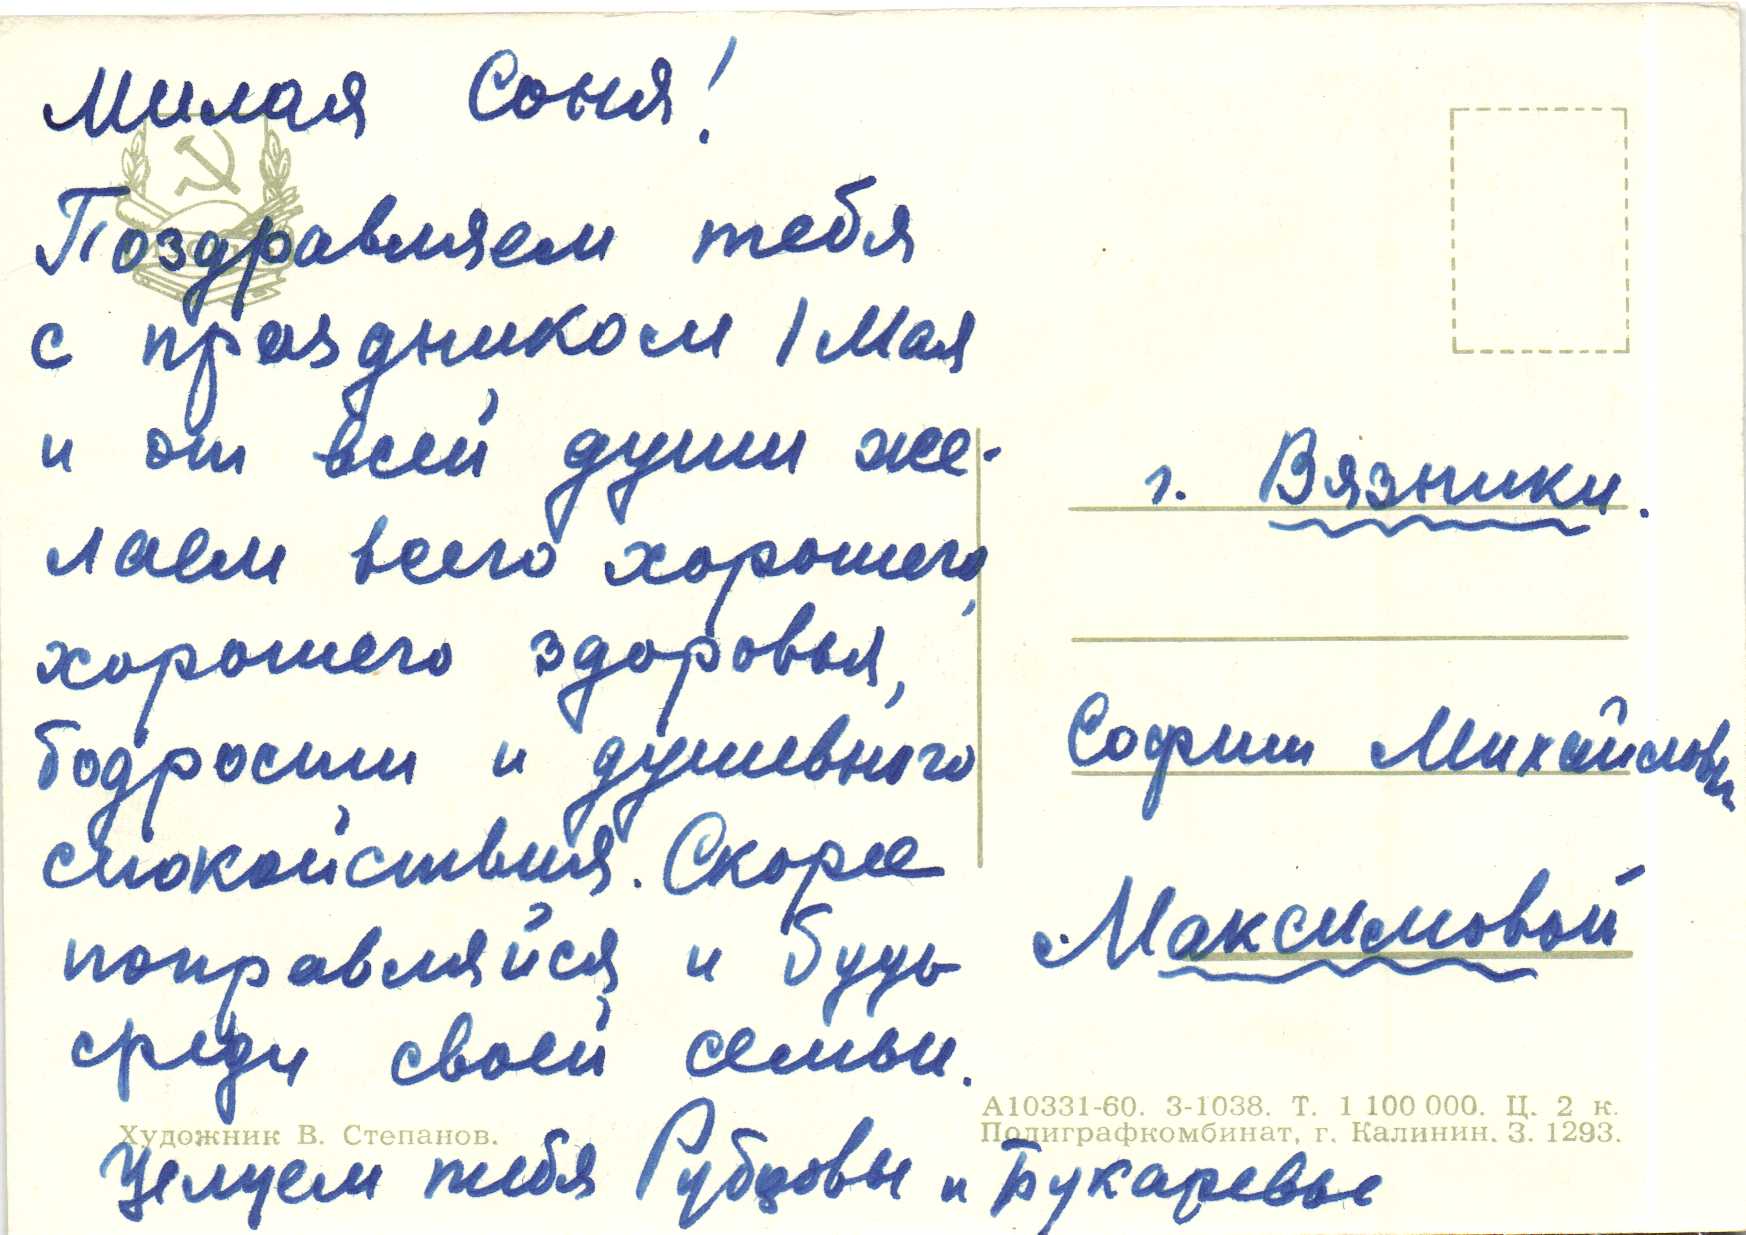 Милая Соня!
Поздравляем тебя
с праздником 1 Мая
и от всей души же-
лаем всего хорошего,
хорошего здоровья,
бодрости и душевного
спокойствия. Скорее
поправляйся и будь
среди своей семьи.
Целуем тебя Рубцовы и Букаревы
Художник В. Степанов.
г. Вязники.
Софии Михайловн
Максимовой
А10331-60. З-1038. Т. 1 100 000. Ц. 2 к.
Полиграфкомбинат, г. Калинин. З. 1293.